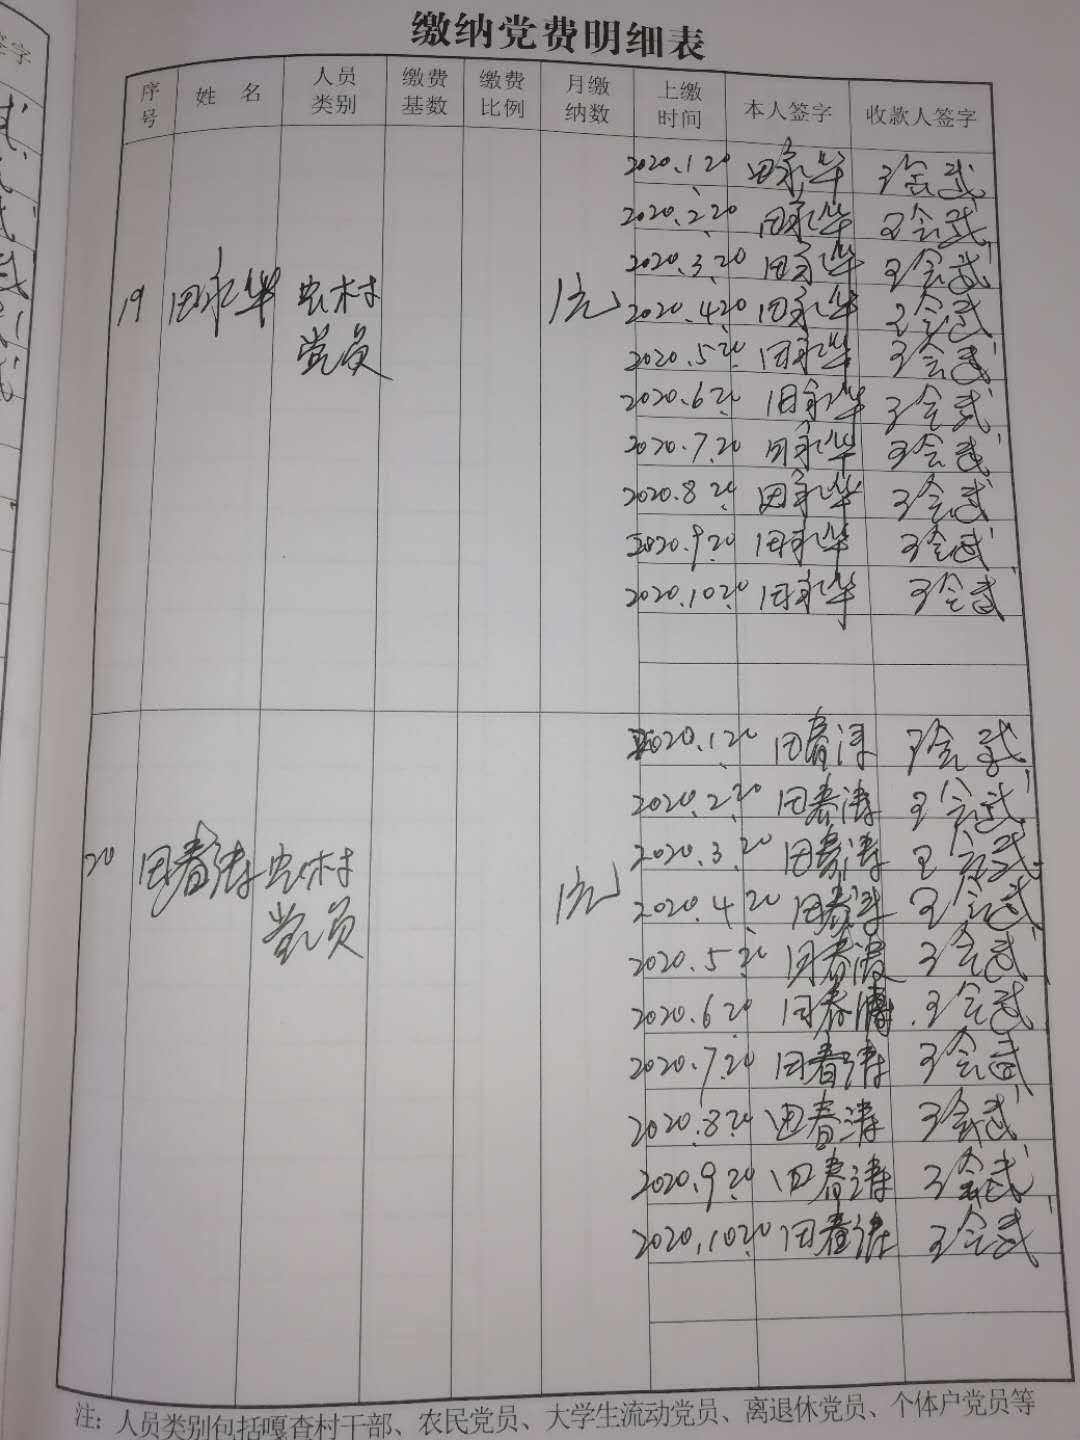 缴纳党费明细表
序号 姓 名 人员类别 缴费基数 缴费比例 月缴纳数 上缴时间 本人签字 收款人签字
19 田永华 农村党员 1元
2020.1.20 田永华 王会武
2020.2.20 田永华 王会武
2020.3.20 田永华 王会武
2020.4.20 田永华 王会武
2020.5.20 田永华 王会武
2020.6.20 田永华 王会武
2020.7.20 田永华 王会武
2020.8.20 田永华 王会武
2020.9.20 田永华 王会武
2020.10.20 田永华 王会武
20 田春涛 农村党员 1元
2020.1.20 田春涛 王会武
2020.2.20 田春涛 王会武
2020.3.20 田春涛 王会武
2020.4.20 田春涛 王会武
2020.5.20 田春涛 王会武
2020.6.20 田春涛 王会武
2020.7.20 田春涛 王会武
2020.8.20 田春涛 王会武
2020.9.20 田春涛 王会武
2020.10.20 田春涛 王会武
注：人员类别包括嘎查村干部、农民党员、大学生流动党员、离退休党员、个体户党员等